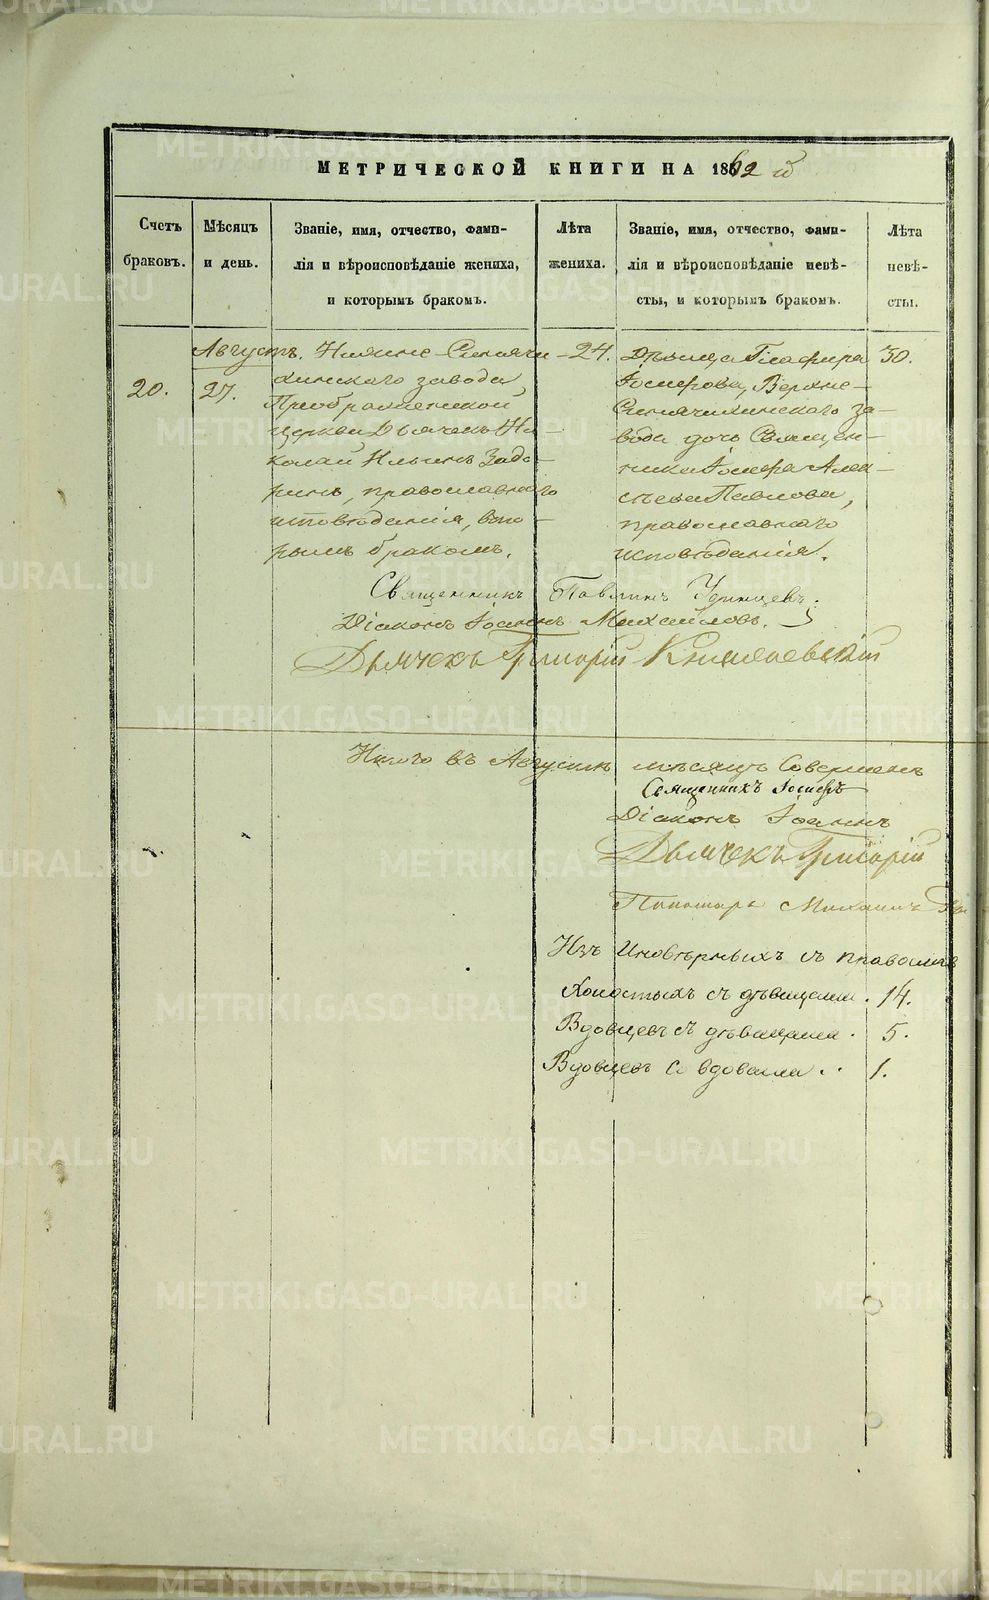 МЕТРИЧЕСКОЙ КНИГИ НА 1862 й
Счетъ браковъ.
Мѣсяцъ и день.
Званіе, имя, отчество, фами-
лія и вѣроисповѣданіе жениха,
и которымъ бракомъ.
Лѣта жениха.
Званіе, имя, отчество, фами-
лія и вѣроисповѣданіе невѣ-
сты, и которымъ бракомъ.
Лѣта невѣ-
сты.
20.
Августъ.
27.
Нижне-Синячи-
хинскаго завода,
Преображенской
церкви Дьячекъ Ни-
колай Ильинъ
православнаго
исповѣданія, вто-
рымъ бракомъ.
24.
Дѣвица Глафира
Іосифова, Верхне-
Синячихинскаго за-
вода дочь Священ-
ника Іосифа Алек-
сѣева Павлова,
православнаго
исповѣданія.
30.
Священникъ Павлинъ Удинцевъ.
Діаконъ Іоаннъ Михайловъ.
Дьячекъ Григорій
Итого въ Августѣ мѣсяцѣ совершенъ
Священникъ Іосифъ
Діаконъ Іоаннъ
Дьячекъ Григорій
Пономарь Михаилъ
Изъ Иновѣрныхъ съ православ
Холостыхъ съ дѣвицами . 14.
Вдовцевъ съ дѣвицами . 5.
Вдовцевъ со вдовами . . 1.
METRIKI.GASO-URAL.RU